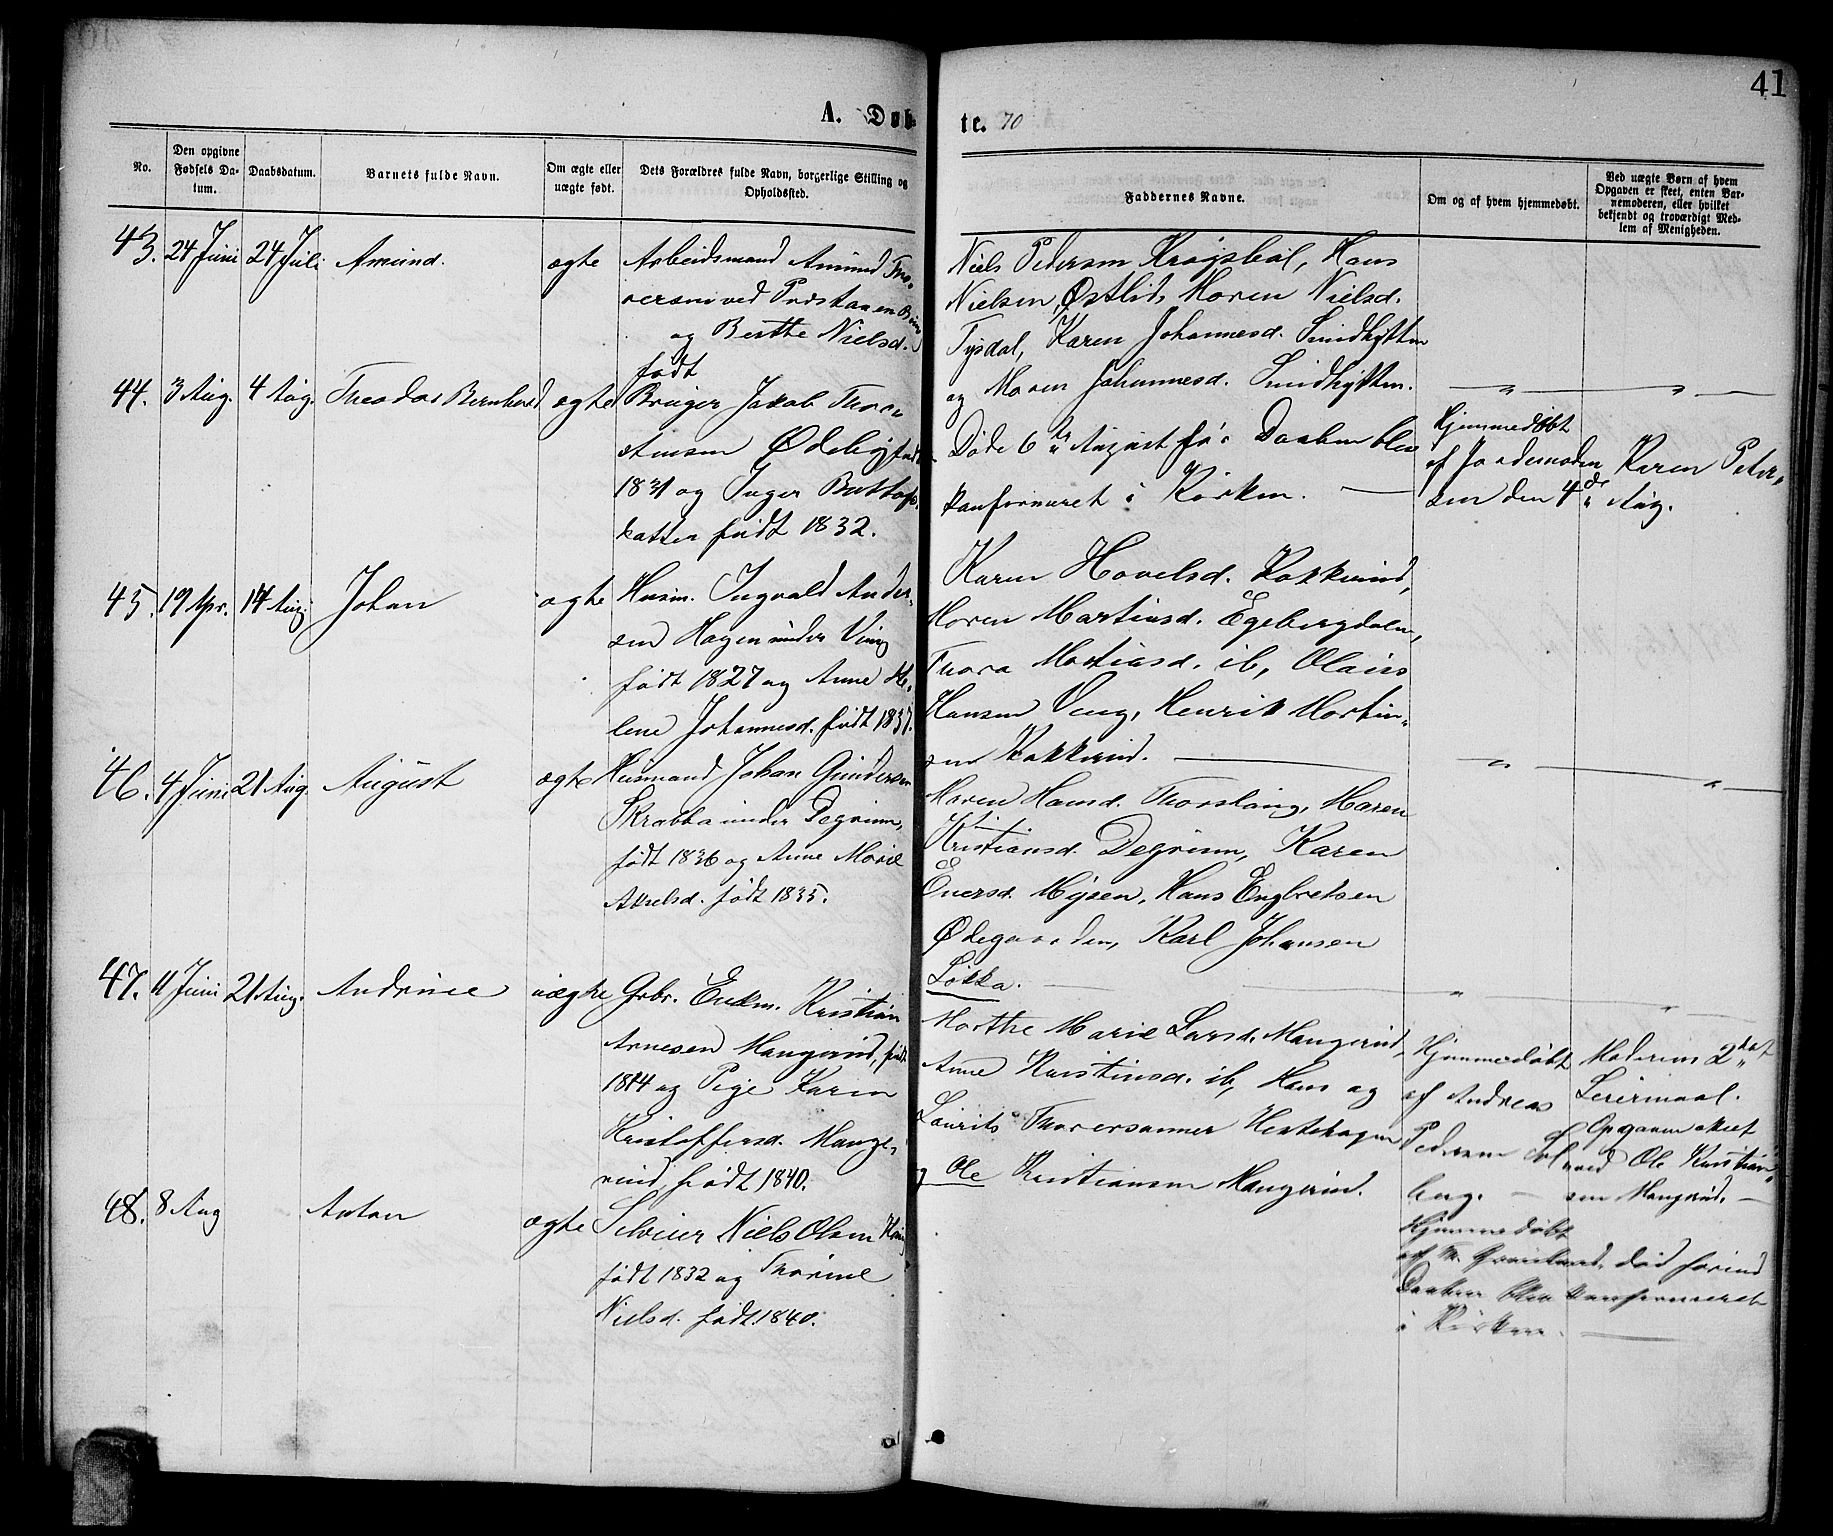 41
A. Døb-
te. 70
No.
Den opgivne Fødsels Da-
tum.
Daabsdatum.
Barnets fulde Navn.
Om ægte eller
uægte født.
Dets Forældres fulde Navn, borgerlige Stilling og
Opholdssted.
Faddernes Navne.
Om og af hvem hjemmedøbt.
Ved uægte Børn af hvem
Opgaven er skeet, enten Bar-
nemoderen, eller hvilket
bekjendt og troværdigt Med-
lem af Menigheden.
43. 24 Juni 24 Juli Amund. ægte
Arbeidsmand Amund Tho-
ersen ved
og Berthe Nielsd.
født
Niels Pedersen Krogsbøl, Hans
Nielsen Østlid, Maren Nielsd.
Tysdal, Karen Johannesd. Smidhytten
og Maren Johannesd. Smidhytten.
44. 3 Aug. 4 Aug. Theodor Bernhard ægte
Bruger Jakob Thor-
stensen Ødeby født
1831 og Inger
født 1832.
Døde 6te August før Daaben blev
konfirmeret i Kirken.
Hjemmedøbt
af Jordemoder Karen Peter-
sen den 4de Aug.
45. 19 Apr. 14 Aug. Johan ægte
Husm. Ingvald Ander-
sen Hagen under Veng
født 1827 og Anne He-
lene Johannesd. født 1837.
Karen Hovelsd. Kokkerud,
Maren Martinsd. Egebergdalen,
Thora Martinsd. ib, Olaus
Hansen Veng, Henrik Martin-
sen Kokkerud.
46. 4 Juni 21 Aug. August ægte
Husmand Johan Gundersen
Skrabba under Degrum,
født 1836 og Anne Marie
Akselsd. født 1835.
Maren Hansd. Thorslang, Maren
Kristiansd. Degrum, Karen
Evensd. Mysen, Hans Engbretsen
Ødegaarden, Karl Johansen
Løkka.
47. 11 Juni 21 Aug. Andrine uægte
Gbr. Enkm. Kristian
Arnesen Mangerud, født
1814 og Pige Karen
Kristoffersd. Mange-
rud, født 1840.
Marthe Marie Larsd. Mangerud,
Anne Kristiansd. ib, Hans og
Laurits Thorersønner Hestehagen
og Ole Kristiansen Mangerud.
Hjemmedøbt
af Andreas
Pedersen Sol-
berg.
Moderens 2det
Leiermaal.
Opgaven skeet
ved Ole Kristian-
sen Mangerud.
48. 8 Aug Anton ægte
Selveier Niels Olsen
født 1832 og Thorine
Nielsd. født 1840.
Hjemmedøbt
af Th. Grønlund, død forind
Daaben blev konfirmeret
i Kirken.